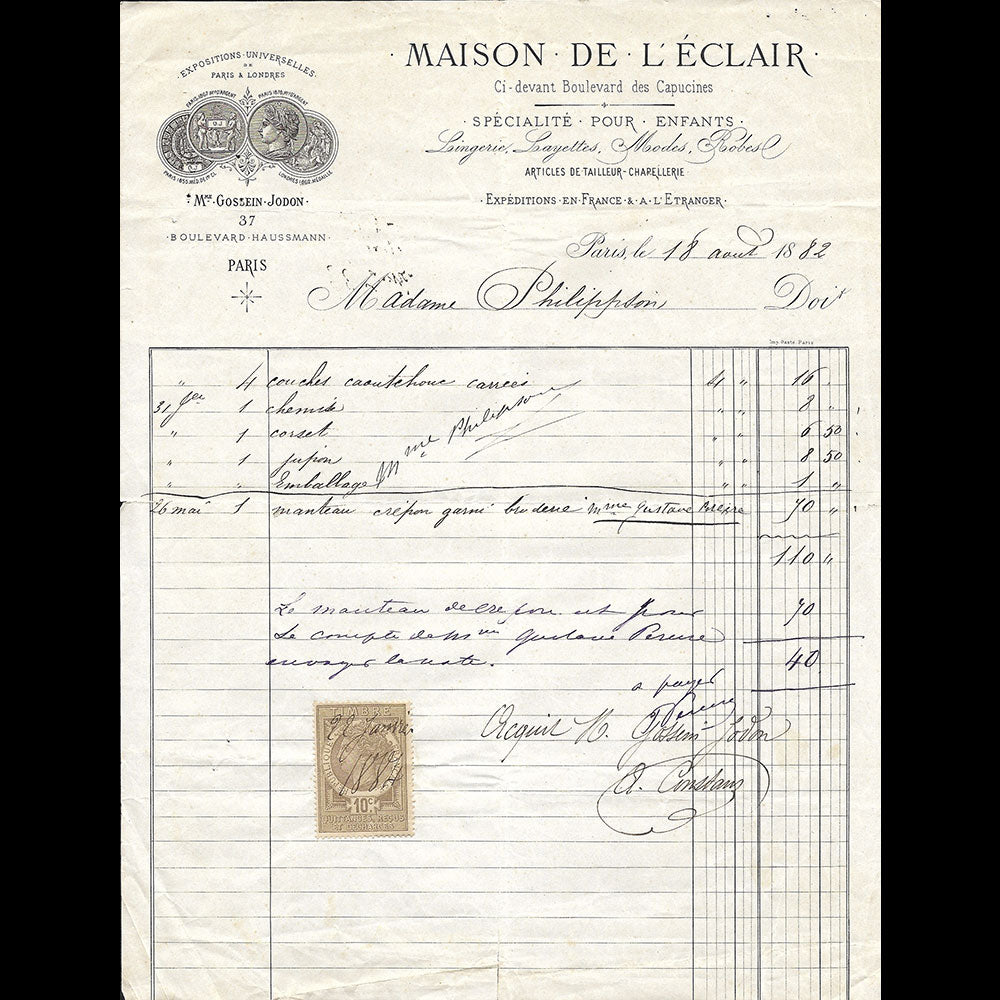 EXPOSITIONS · UNIVERSELLES
DE
PARIS & LONDRES
PARIS 1867 Mon D'ARGENT PARIS 1878 Mon D'ARGENT
PARIS 1855 MED. DE 1re CL. LONDRES 1862 MÉDAILLE
Mme GOSSEIN-JODON
37
BOULEVARD-HAUSSMANN
PARIS
· MAISON · DE · L'ÉCLAIR ·
Ci-devant Boulevard des Capucines
· SPÉCIALITÉ · POUR · ENFANTS ·
Lingerie, Layettes, Modes, Robes
ARTICLES DE TAILLEUR - CHAPELLERIE
· EXPÉDITIONS · EN · FRANCE · & · A · L'ETRANGER ·
Paris, le 18 aout 1882
Madame Philippson Doit
Imp. Paris
" 4 couches caoutchouc carrées 4 " 16 .
31 1 chemise " " 8 "
" 1 corset " " 6 50
" 1 jupon " " 8 50
" " Emballage " " 1 "
Mme Philipson
26 mai 1 manteau crépon garni broderie Mme Gustave Pereire 70 "
110 "
Le manteau de crepon est pour 70
Le compte de Mme Gustave Pereire
envoyer la note. 40
a payer
Pereire
Acquit M. Gossein Jodon
A. Constans
TIMBRE
22 Janvier
188
10c
QUITTANCES, REÇUS
ET DÉCHARGES